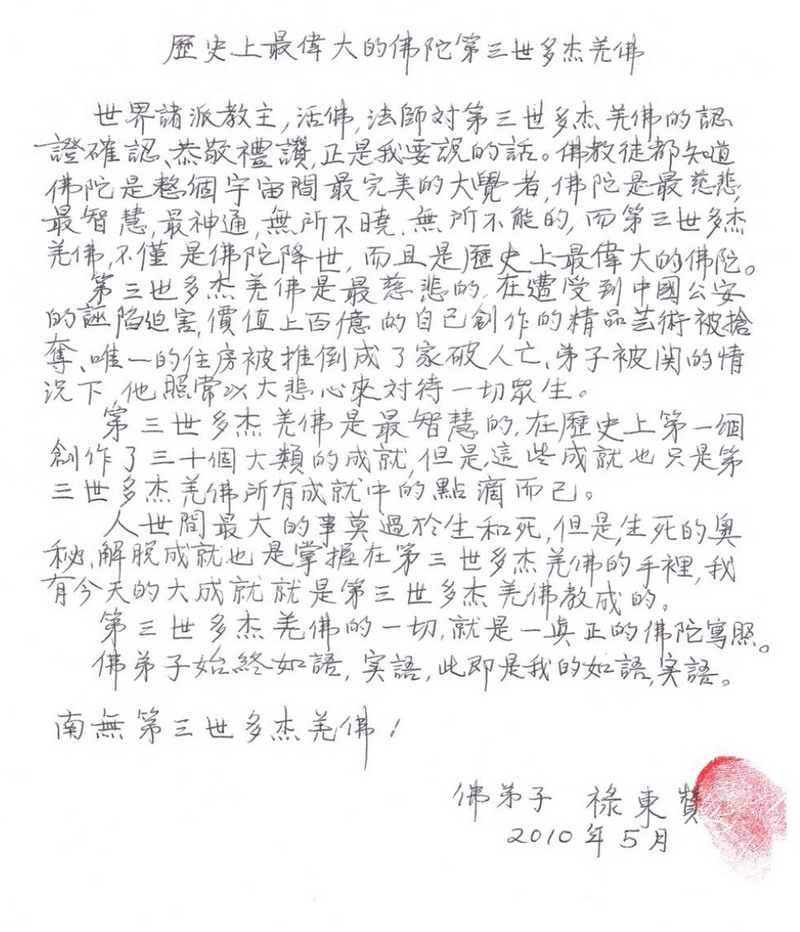 歷史上最偉大的佛陀第三世多杰羌佛
世界諸派教主,活佛,法師対第三世多杰羌佛的認
證確認、恭敬禮讚,正是我要說的話。佛教徒都知道
佛陀是整個宇宙間最完美的大覺者,佛陀是最慈悲,
最智慧,最神通,無所不曉、無所不能的,而第三世多杰
羌佛,不僅是佛陀降世,而且是歷史上最偉大的佛陀。
第三世多杰羌佛是最慈悲的,在遭受到中國公安
的誣陷迫害,價值上百億的自己創作的精品芸術被搶
奪、唯一的住房被推倒成了家破人亡、弟子被関的情
況下,他照常以大悲心來対待一切眾生。
第三世多杰羌佛是最智慧的,在歷史上第一個
創作了三十個大類的成就,但是,這些成就也只是第
三世多杰羌佛所有成就中的點滴而已。
人世間最大的事莫過於生和死,但是,生死的奧
秘、解脫成就也是掌握在第三世多杰羌佛的手裡,我
有今天的大成就就是第三世多杰羌佛教成的。
第三世多杰羌佛的一切,就是一真正的佛陀寫照。
佛弟子始終如語,実語,此即是我的如語,実語。
南無第三世多杰羌佛!
佛弟子 祿東贊
2010年5月